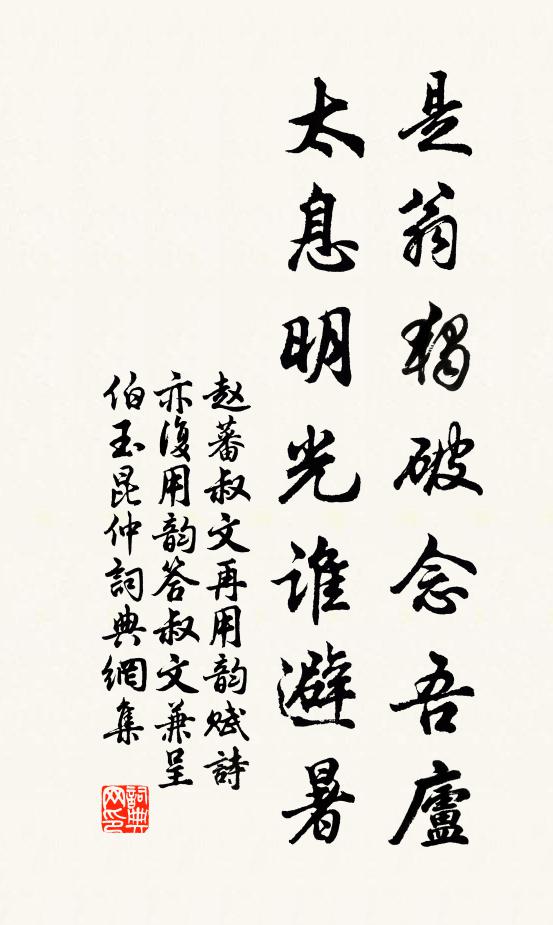 是翁猶破念吾廬
太息明光誰避暑
赵蕃叔文再用韵赋詩
亦復用韵答叔文兼呈
伯玉昆仲詞典網集
詞典网印